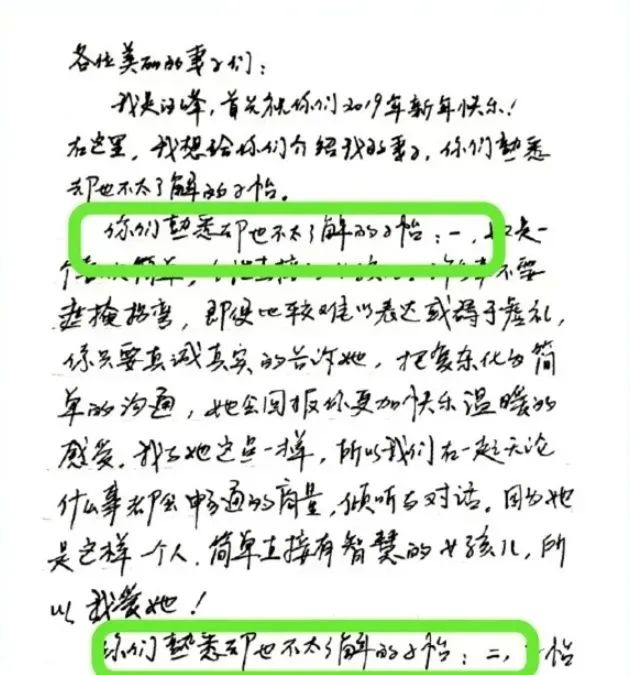 各位美丽的妻子们：
我是汪峰，首先祝你们2019年新年快乐！
在这里，我想给你们介绍我的妻子，你们熟悉
却也不太了解的子怡。
你们熟悉却也不太了解的子怡：一，她是一
个 简单， 直接 不要
遮掩拐弯，即使比较难以表达或碍于虚礼，
你只要真诚真实的告诉她，把复杂化为简
单的沟通，她会回报你更加快乐温暖的
感受。我与她这点一样，所以我们在一起无论
什么事都会畅通的商量，倾听与对话。因为她
是这样一个人，简单直接有智慧的女孩儿，所
以我爱她！
你们熟悉却也不太了解的子怡：二，子怡